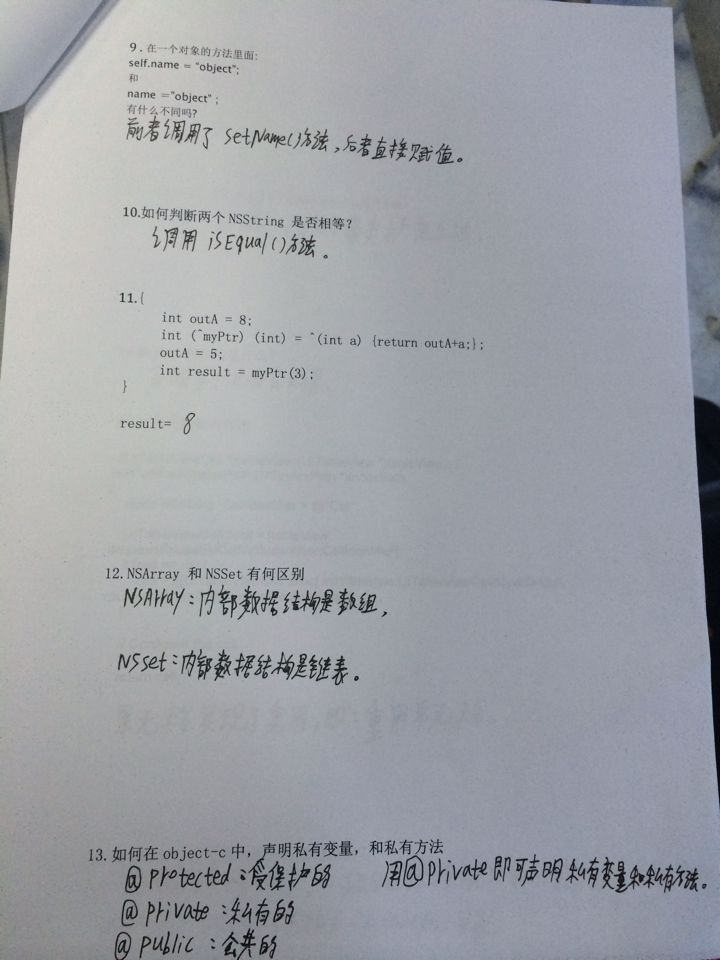 9．在一个对象的方法里面:
self.name = "object";
和
name ="object" ;
有什么不同吗?
前者调用了 setName()方法，后者直接赋值。
10.如何判断两个 NSString 是否相等?
调用 isEqual()方法。
11.{
int outA = 8;
int (^myPtr) (int) = ^(int a) {return outA+a;};
outA = 5;
int result = myPtr(3);
}
result= 8
12. NSArray 和 NSSet 有何区别
NSArray：内部数据结构是数组,
NSset：内部数据结构是链表。
13. 如何在 object-c 中，声明私有变量，和私有方法
@protected：受保护的 用@private即可声明私有变量和私有方法。
@private：私有的
@public：公共的